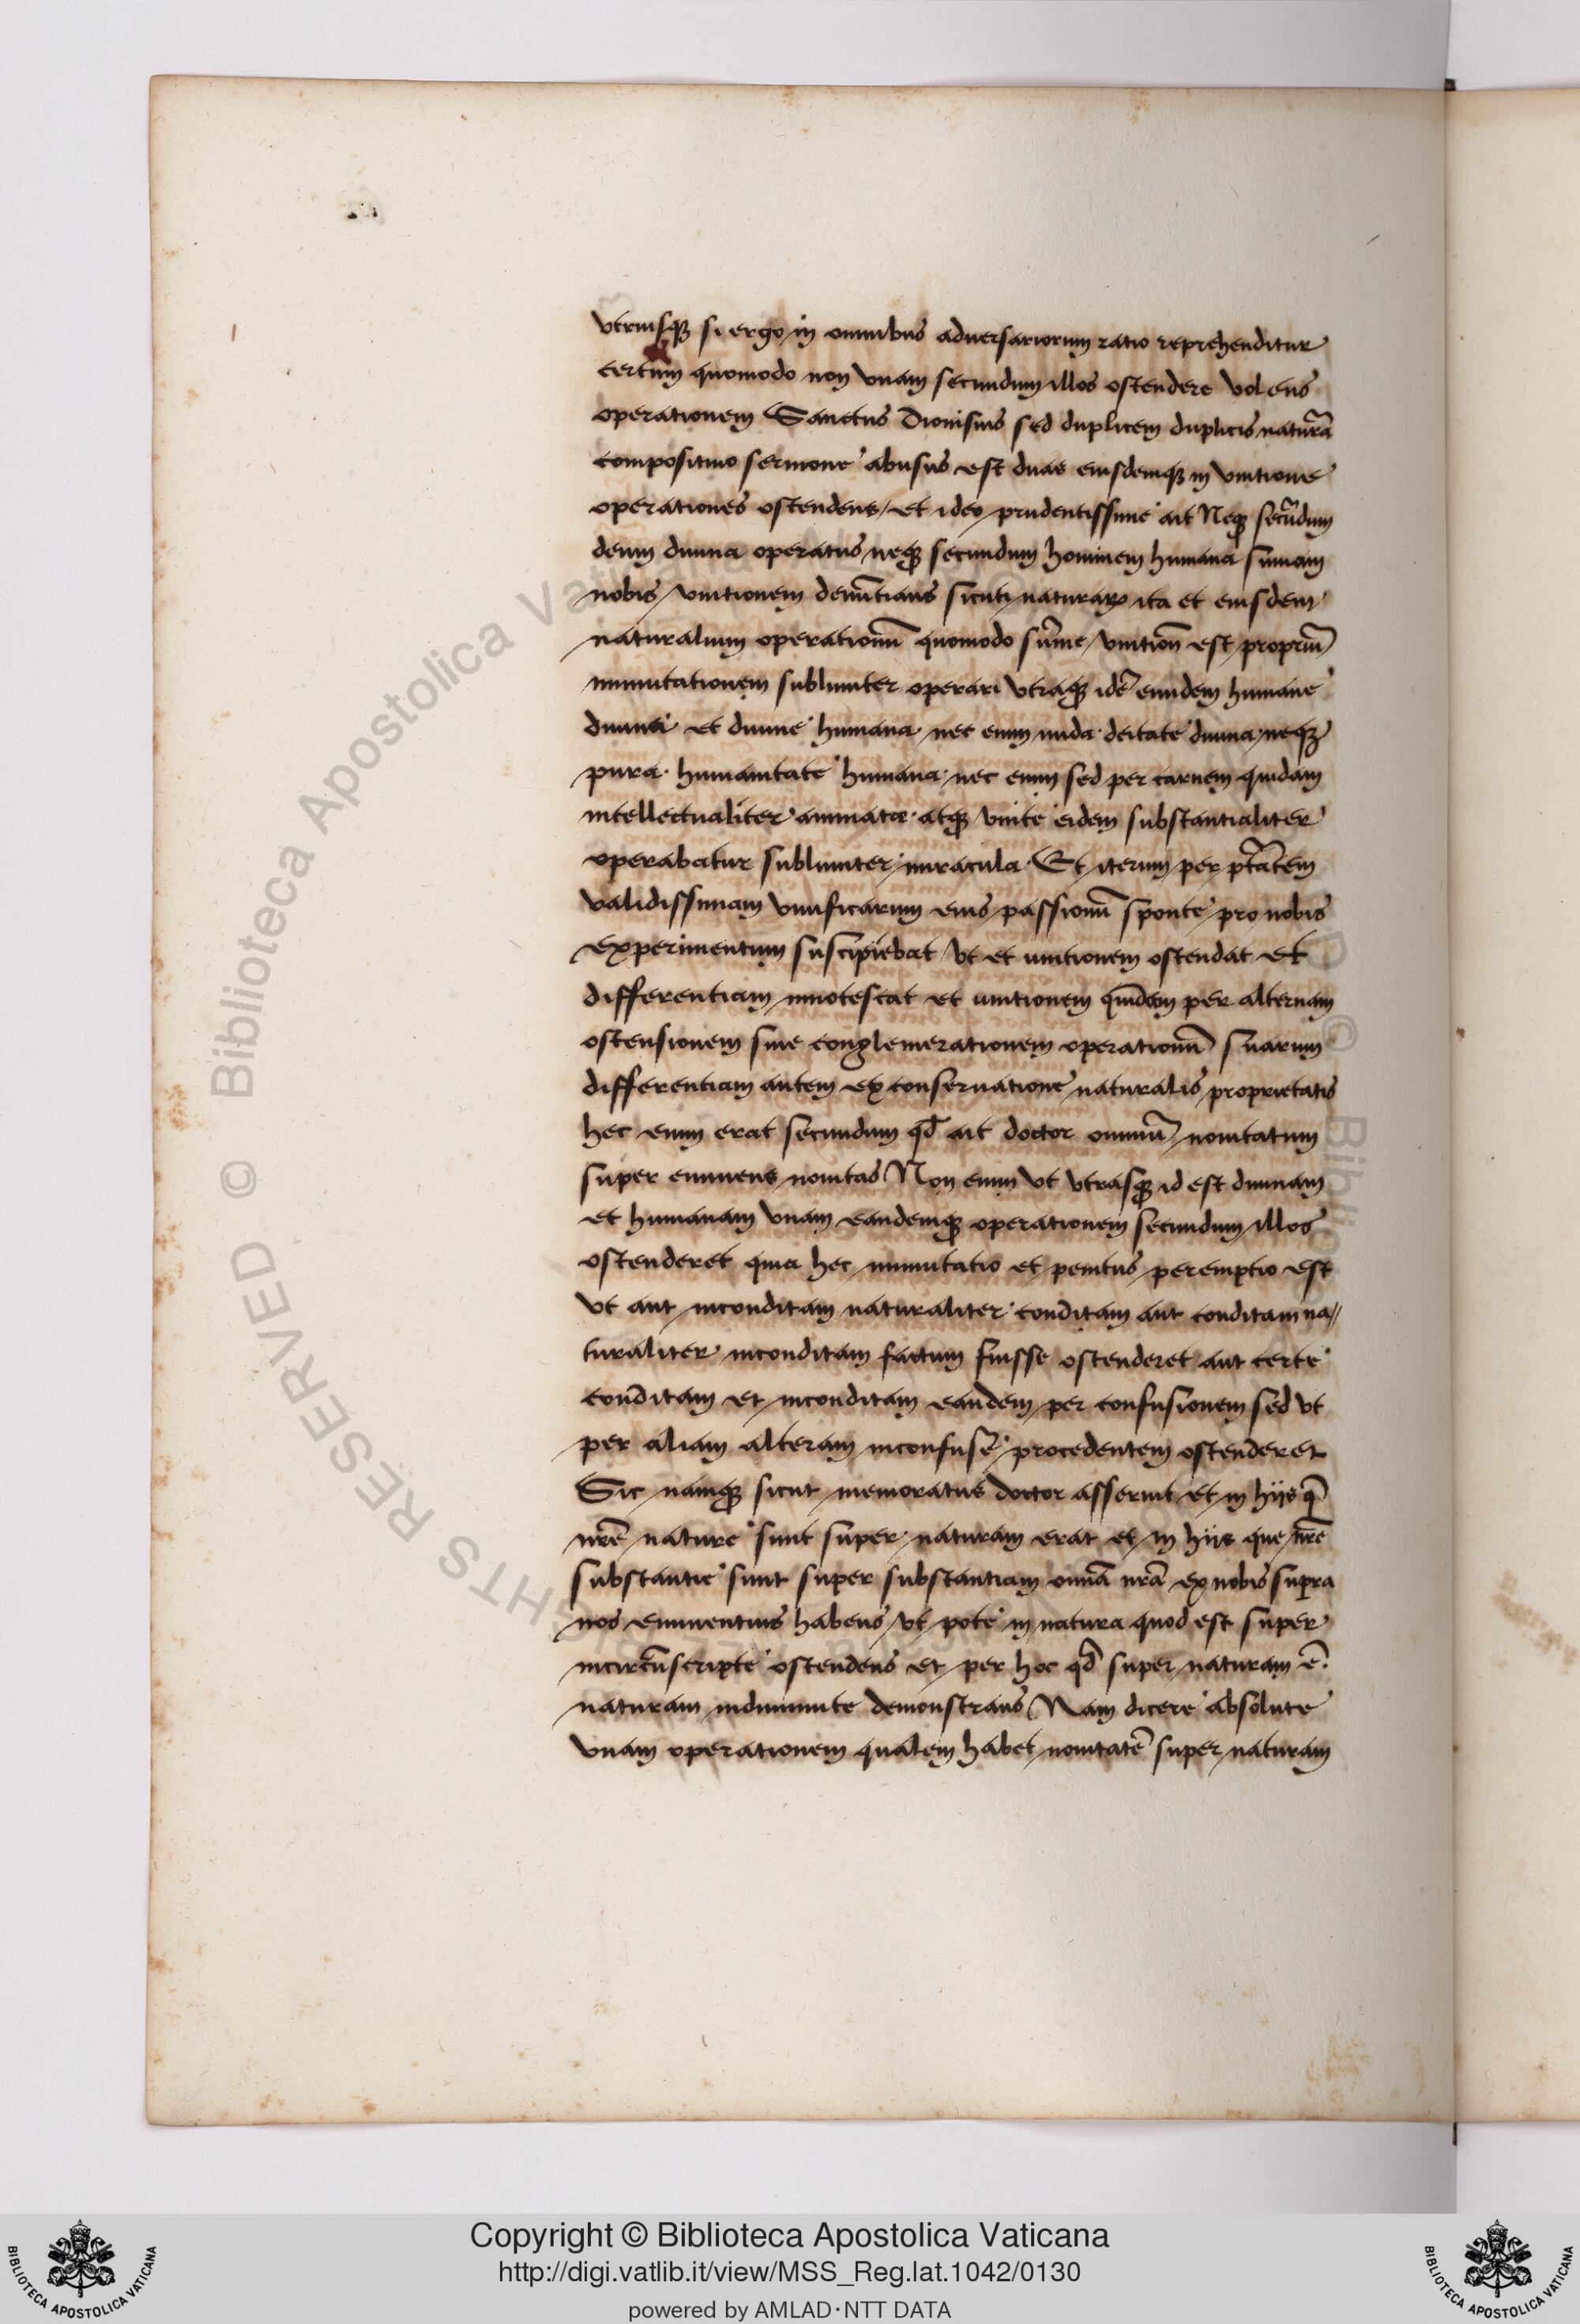 vtriusqꝫ si ergo in omnibus aduersariorum ratio reprehenditur
certum quomodo non vnam secundum illos ostendere volens
operationem Sanctus Dionisius sed duplicem duplicis naturã
compositiuo sermone abusus est duas eiusdemqꝫ in vnitione
operationes ostendens et ideo prudentissime ait Neqꝫ secũdum
deum diuina operatus neqꝫ secundum hominem humana sumam
nobis vnitionem denũtians sicuti naturarꝫ ita et eiusdem
naturalium operationũ quomodo sũme vnition̄ est propriũ
immutationem sublimiter operari vtraqꝫ idẽ eundem humane
diuina et diuine humana nec enim nuda deitate diuina neqꝫ
pura humanitate humana nec enim sed per carnem quidam
intellectualiter animatæ atqꝫ vnite eidem substantialiter
operabatur sublimiter miracula Et iterum per ptãtem
validissimam viuificarum eius passionũ sponte pro nobis
experimentum suscipiebat vt et unitionem ostendat et
differentiam innotescat et unitionem quidem per alternam
ostensionem siue conglemerationem operationũ suarum
differentiam autem ex conseruatione naturalis proprietatis
hec enim erat secundum qđ ait doctor omniũ nouitatum
super eminens nouitas Non enim vt vtrasqꝫ id est diuinam
et humanam vnam eandemqꝫ operationem secundum illos
ostenderet quia hec immutatio et penitus peremptio est
vt aut inconditam naturaliter conditam aut conditam na//
turaliter inconditam factum fuisse ostenderet aut certe
conditam et inconditam eandem per confusionem sed vt
per aliam alteram inconfuse procedentem ostenderet
Sic namqꝫ sicut memoratus doctor asseruit et in hijs q̃
nr̃e nature sunt super naturam erat et in hijs que nr̃e
substantie sunt super substantiam omnã nr̃a ex nobis supra
nos eminentius habens vt pote in natura quod est super
incircũscripte ostendens et per hoc qđ super naturam ẽ
naturam indiminute demonstrans Nam dicere absolute
vnam operationem qualem habet nouitatẽ super naturam
© Biblioteca Apostolica Vaticana
Copyright © Biblioteca Apostolica Vaticana
http://digi.vatlib.it/view/MSS_Reg.lat.1042/0130
powered by AMLAD·NTT DATA
BIBLIOTECA APOSTOLICA VATICANA
BIBLIOTECA APOSTOLICA VATICANA